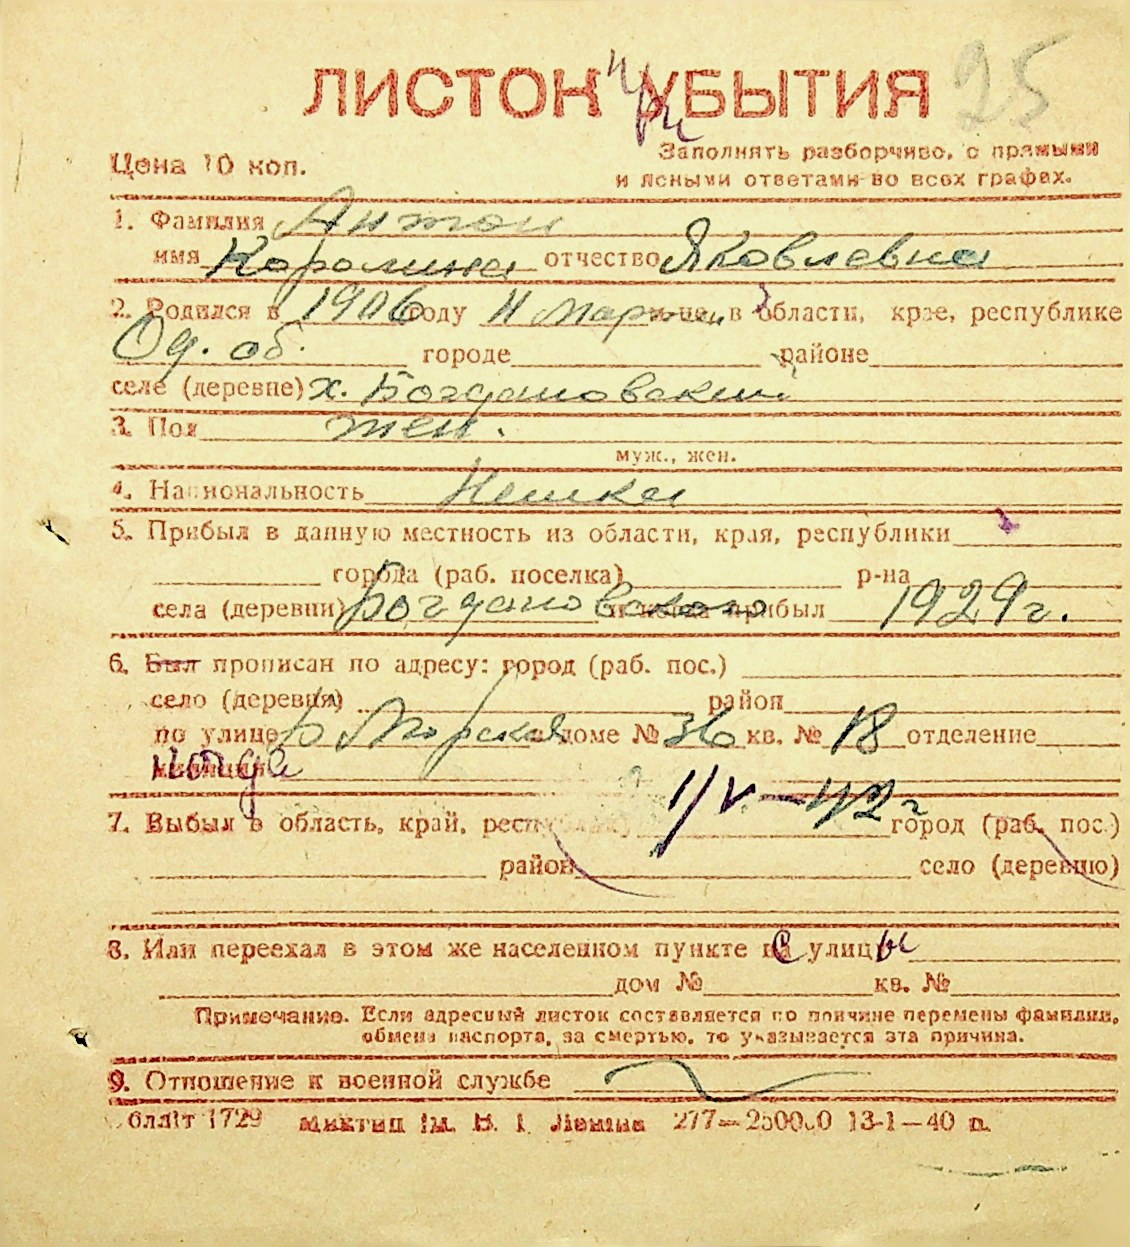 ЛИСТОК УБЫТИЯ 25
при
Цена 10 коп.
Заполнять разборчиво, с прямыми
и ясными ответами во всех графах.
1. Фамилия Антон
имя Каролина отчество Яковлевна
2. Родился в 1906 году 11 марта м-це в области, крае, республике
Од. об. городе районе
селе (деревне) х. Богдановский
3. Пол жен.
муж., жен.
4. Национальность Немка
5. Прибыл в данную местность из области, края, республики
города (раб. поселка) р-на
села (деревни) Богдановского прибыл 1929 г.
6. Был прописан по адресу: город (раб. пос.)
село (деревня) район
по улице Б Морская в доме № 36 кв. № 18 отделение
милиции когда
1/V-42 г
7. Выбыл в область, край, республику город (раб. пос.)
район село (деревню)
8. Или переехал в этом же населенном пункте с улицы
дом № кв. №
Примечание. Если адресный листок составляется по причине перемены фамилии,
обмена паспорта, за смертью, то указывается эта причина.
9. Отношение к военной службе
Облліт 1729 Миктип ім. В. І. Леніна 277—250000 13-1—40 п.